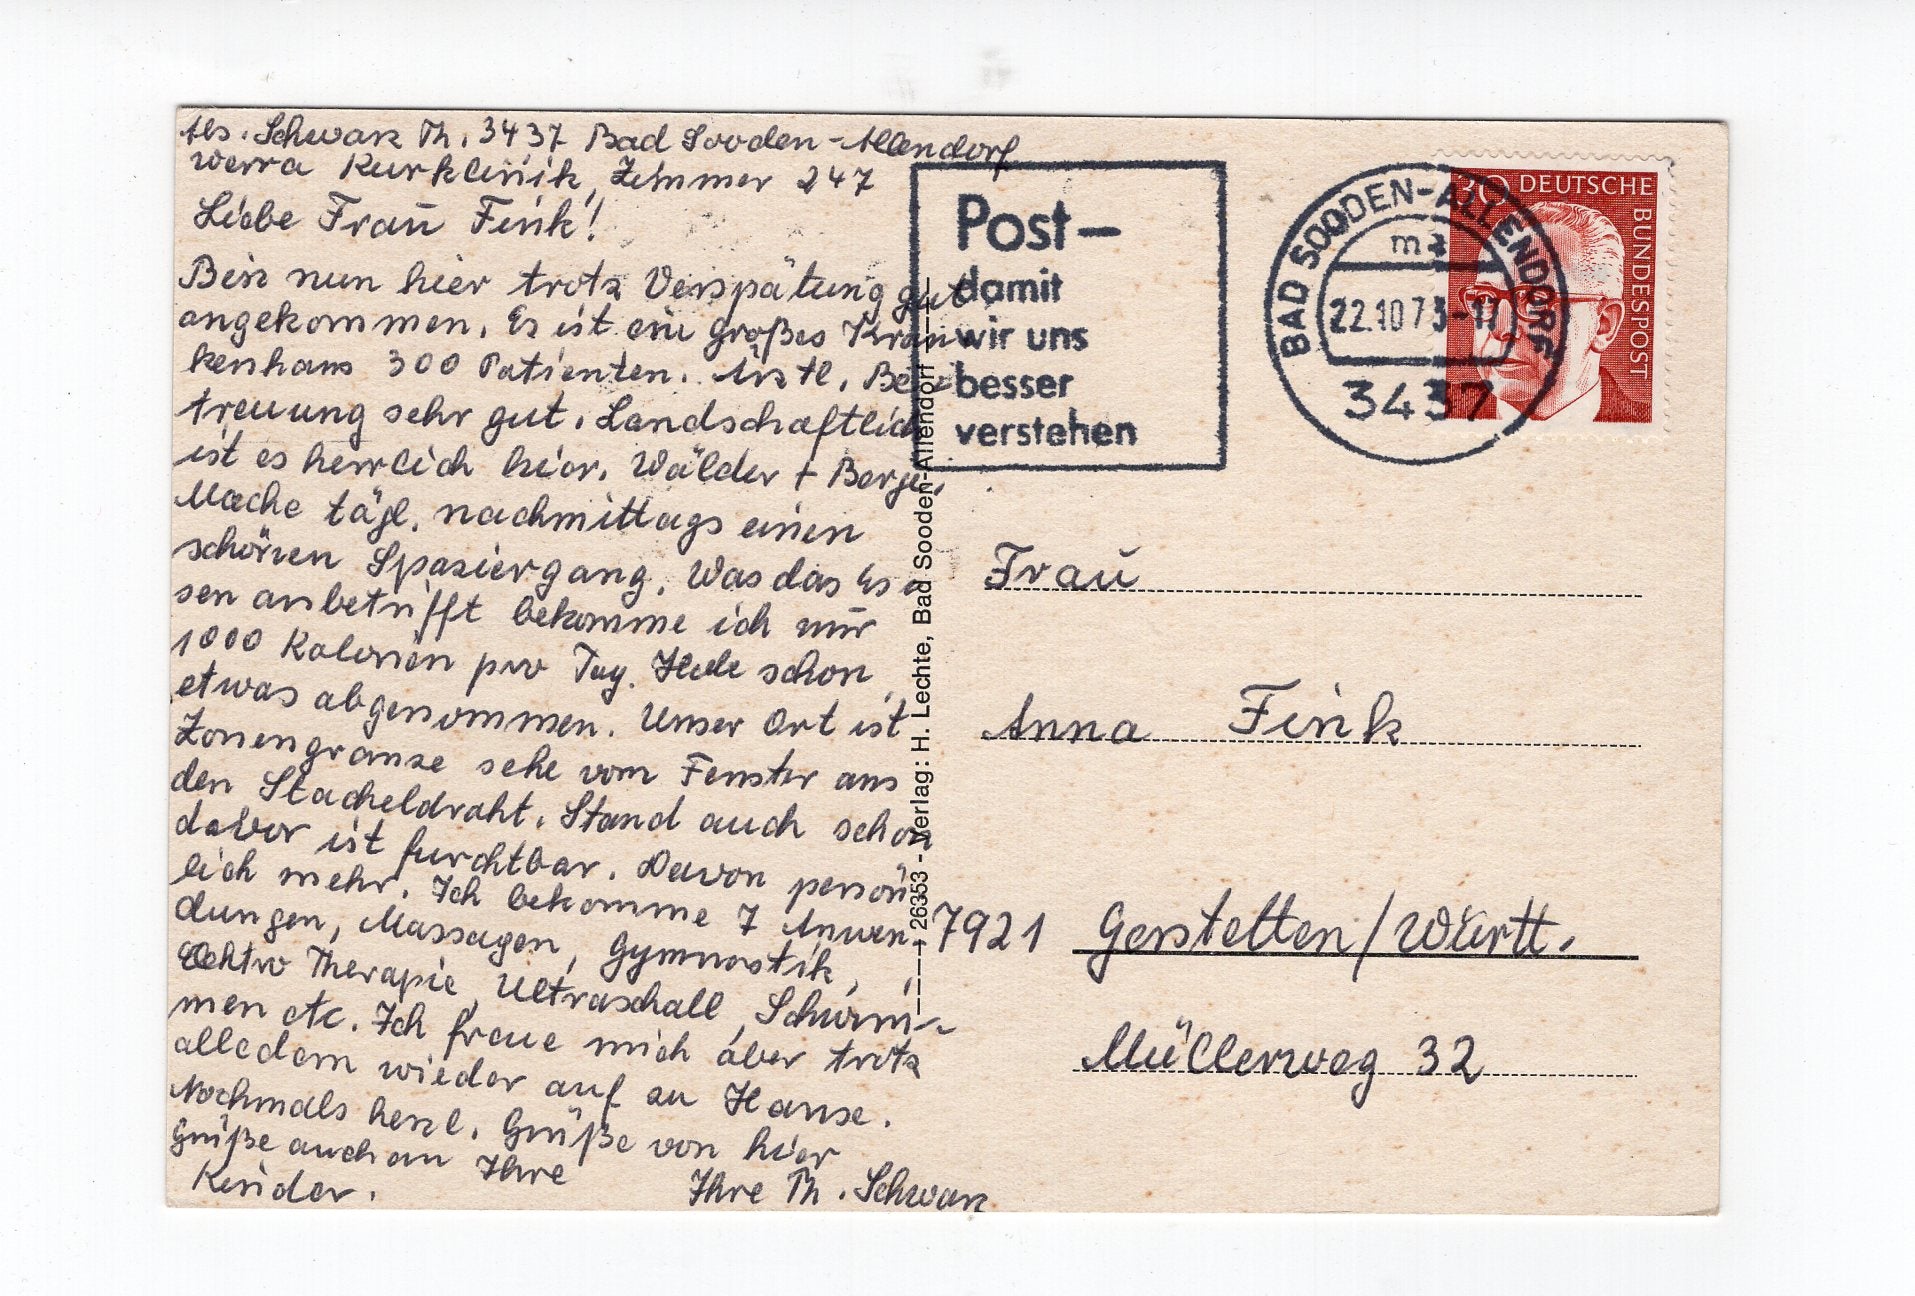 Abs. Schwarz Th. 3437 Bad Sooden-Allendorf
Werra Kurklinik, Zimmer 247
Liebe Frau Fink!
Bin nun hier trotz Verspätung gut
angekommen. Es ist ein großes Kran-
kenhaus 300 Patienten. Ärztl. Be-
treuung sehr gut. Landschaftlich
ist es herrlich hier. Wälder + Berge.
Mache tägl. nachmittags einen
schönen Spaziergang. Was das Es-
sen anbetrifft bekomme ich nur
1000 Kalorien pro Tag. Habe schon
etwas abgenommen. Unser Ort ist
Zonengranze sehe vom Fenster aus
den Stacheldraht. Stand auch schon
davor ist furchtbar. Davon persön-
lich mehr. Ich bekomme 7 Anwen-
dungen, Massagen, Gymnastik,
Elektro Therapie, Ultraschall, Schwim-
men etc. Ich freue mich aber trotz
alledem wieder auf zu Hause.
Nochmals herzl. Grüße von hier
Grüße auch an Ihre
Kinder.
Ihre Th. Schwarz
26353 - Verlag: H. Lechte, Bad Sooden-Allendorf
Post-
damit
wir uns
besser
verstehen
BAD SOODEN-ALLENDORF
ma
22.10.73-17
3437
30 DEUTSCHE
BUNDESPOST
Frau
Anna Fink
7921 Gerstetten/Württ.
Müllerweg 32